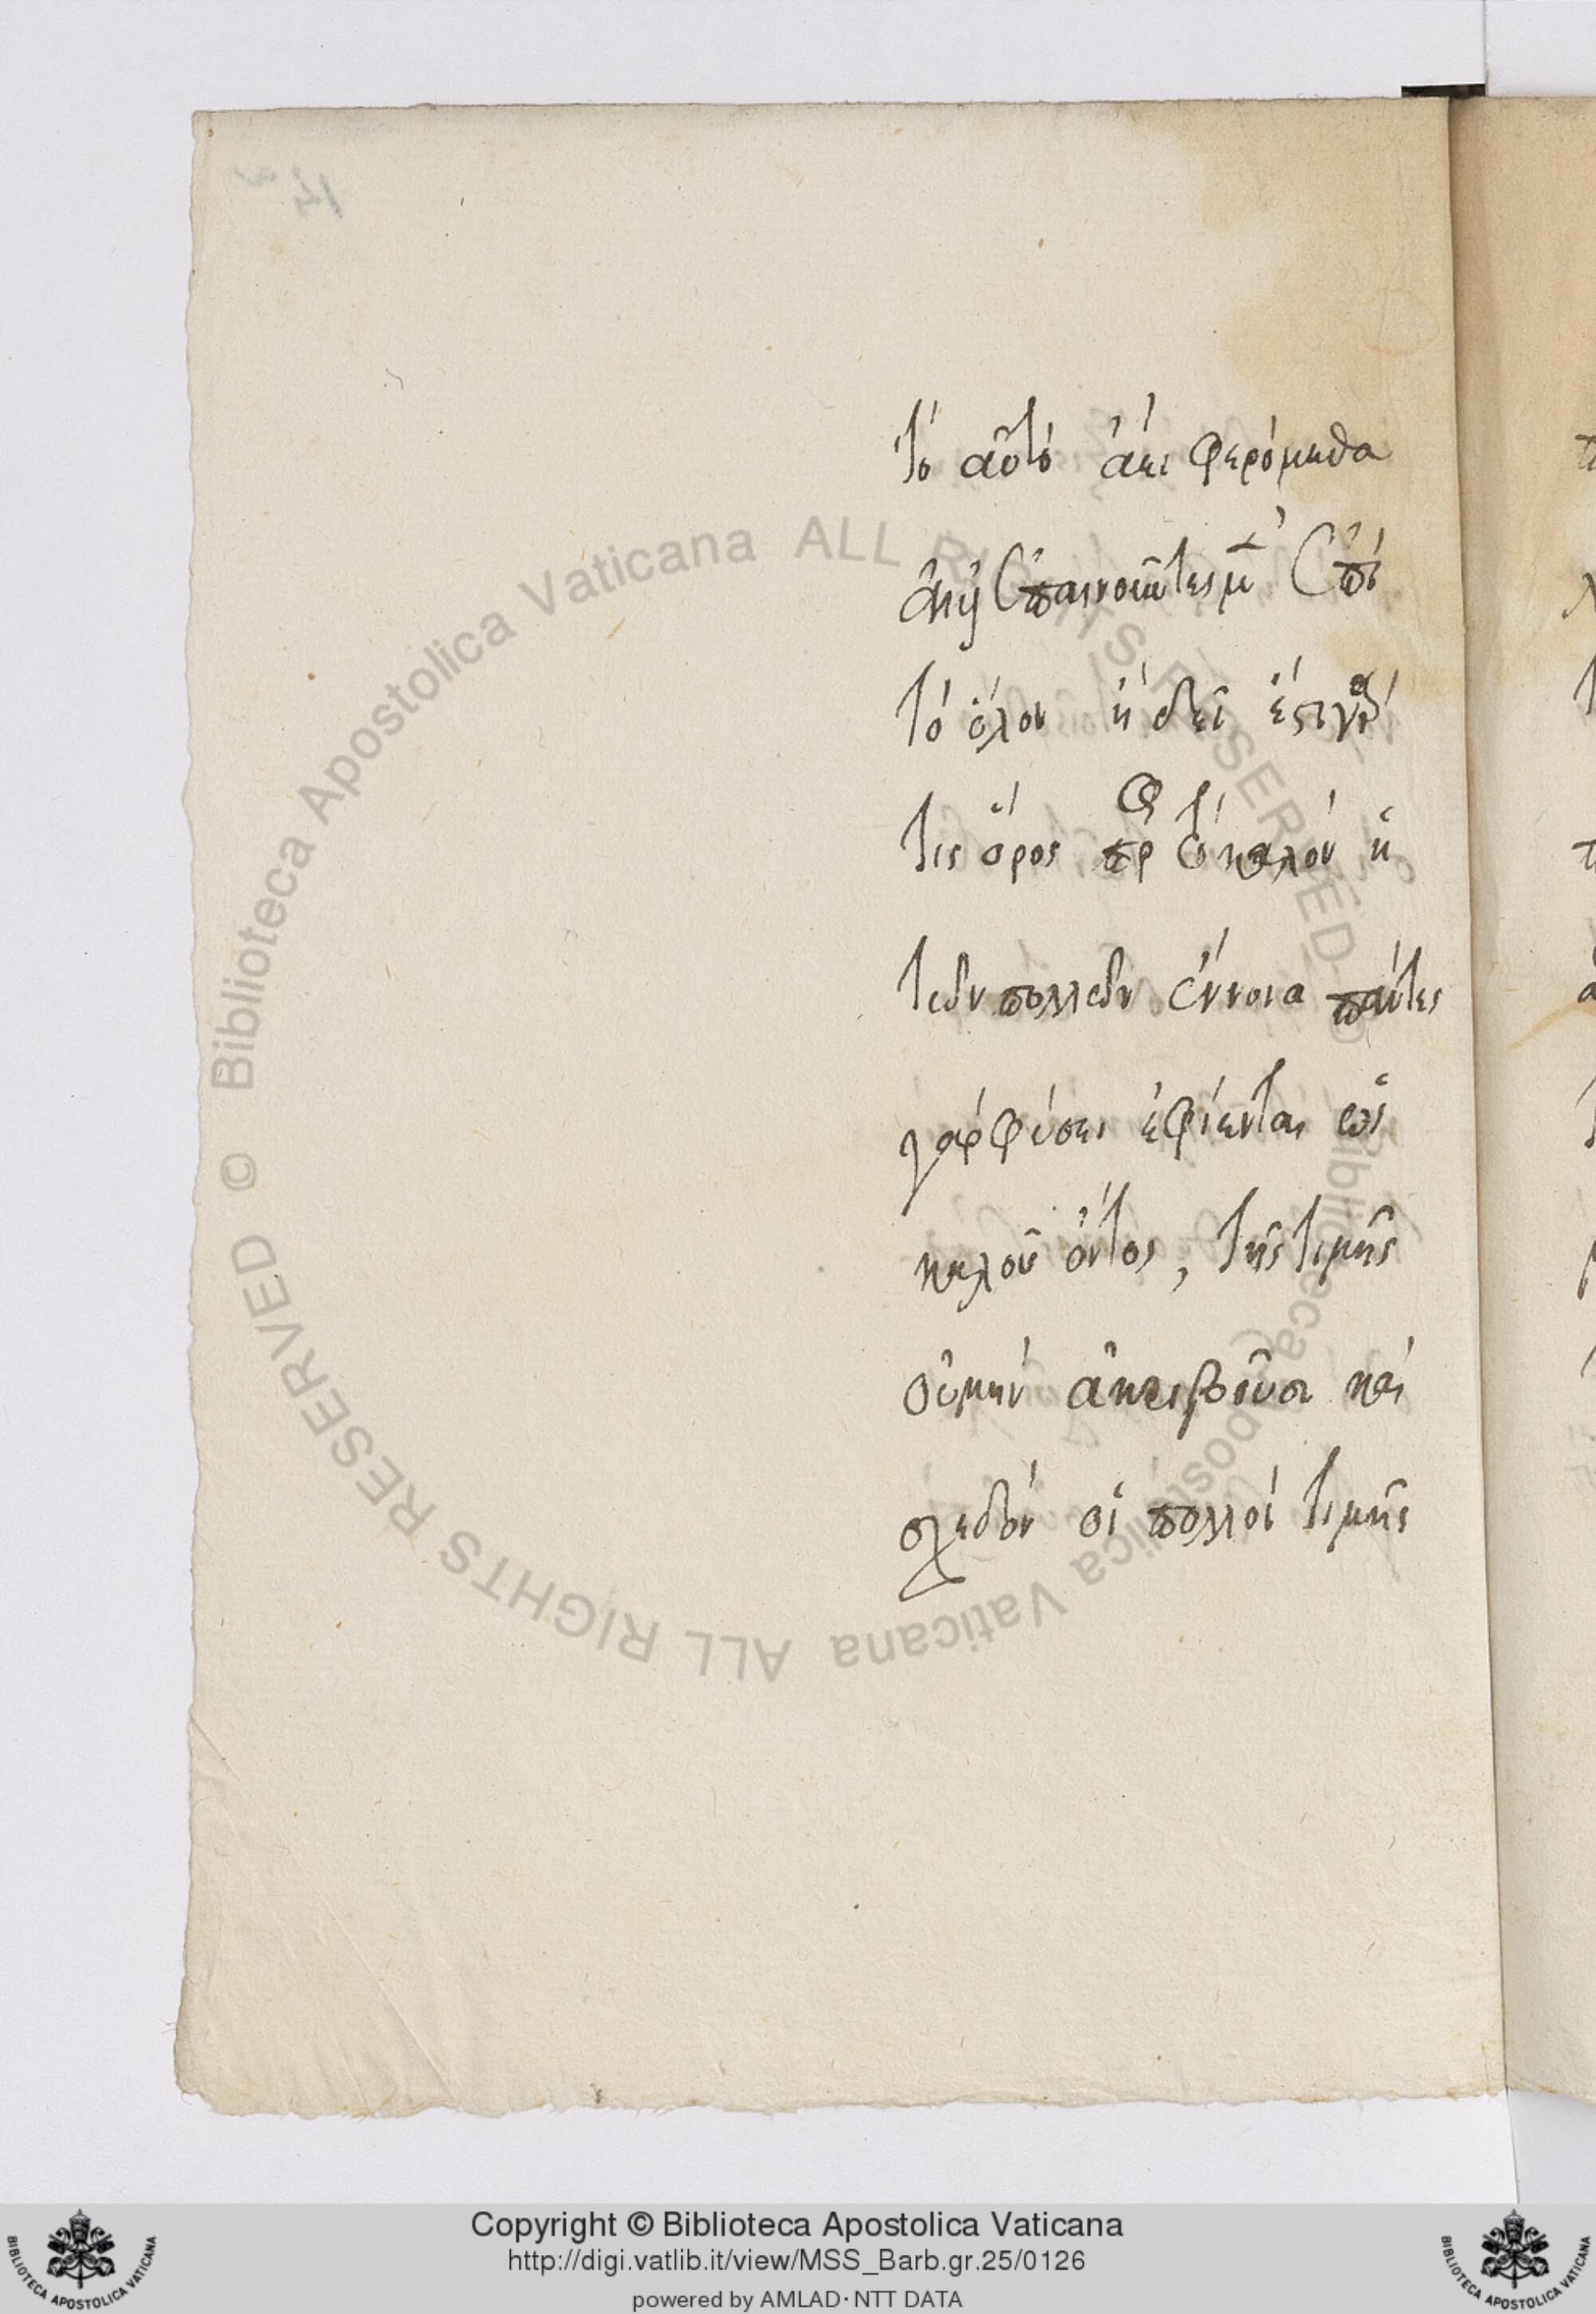 τὸ αὐτὸ ἀεὶ φερόμεθα
τὸ ὅλον ἢ δεῖ ἔστι γὰρ
τις ὅρος πρὸς τὸ καλὸν ἡ
τῶν πολλῶν ἔννοια πάντες
γὰρ φύσει ἐφίενται ὡς
καλοῦ ὄντος, τῆς τιμῆς
οὐ μὴν ἀκριβοῦσι καὶ
σχεδὸν οἱ πολλοὶ τιμῆς
© Biblioteca Apostolica Vaticana ALL RIGHTS RESERVED © Biblioteca Apostolica Vaticana ALL RIGHTS RESERVED
Copyright © Biblioteca Apostolica Vaticana
http://digi.vatlib.it/view/MSS_Barb.gr.25/0126
powered by AMLAD·NTT DATA
BIBLIOTECA APOSTOLICA VATICANA
BIBLIOTECA APOSTOLICA VATICANA